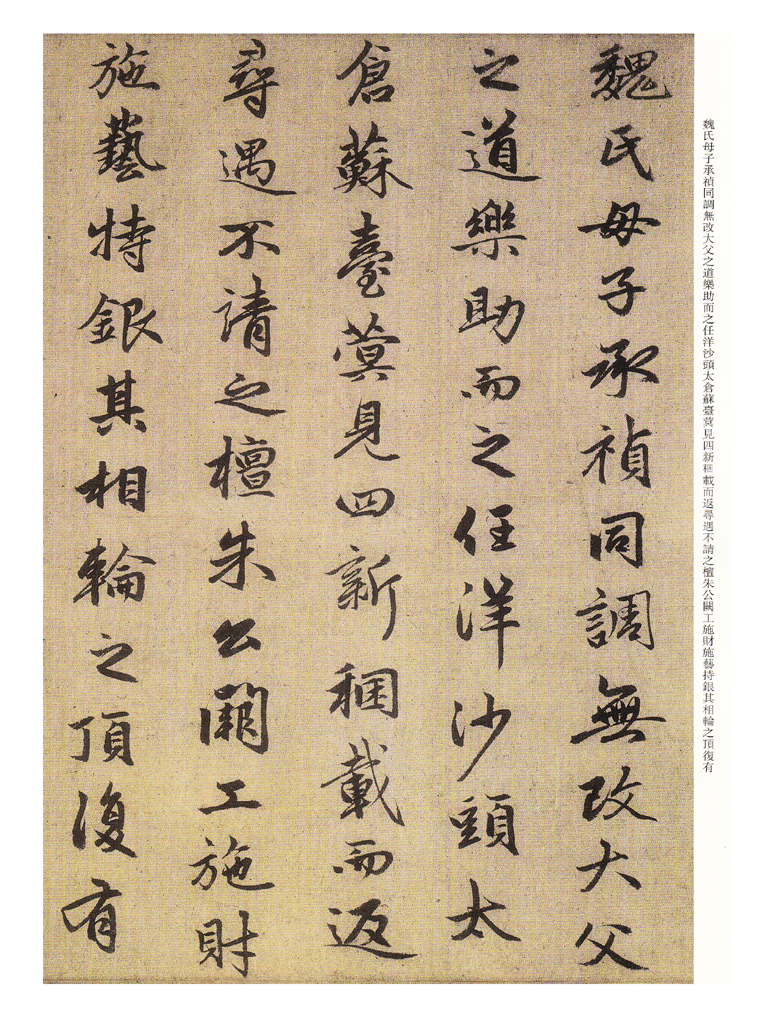 魏氏母子承禎同調無改大父
之道樂助而之任洋沙頭太
倉蘇臺蓂見四新稇載而返
尋遇不請之檀朱公闕工施財
施藝持銀其相輪之頂復有
魏氏母子承禎同調無改大父之道樂助而之任洋沙頭太倉蘇臺蓂見四新稇載而返尋遇不請之檀朱公闕工施財施藝持銀其相輪之頂復有